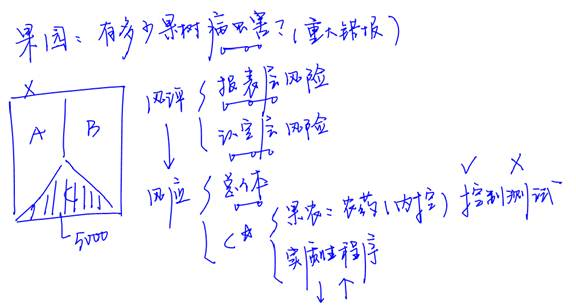 果园：有多少果树病虫害？（重大错报）
A B
H
5000
风评 报表层风险
认定层风险
风应 总体
C A 果农：农药（内控） 控制测试
实质性程序